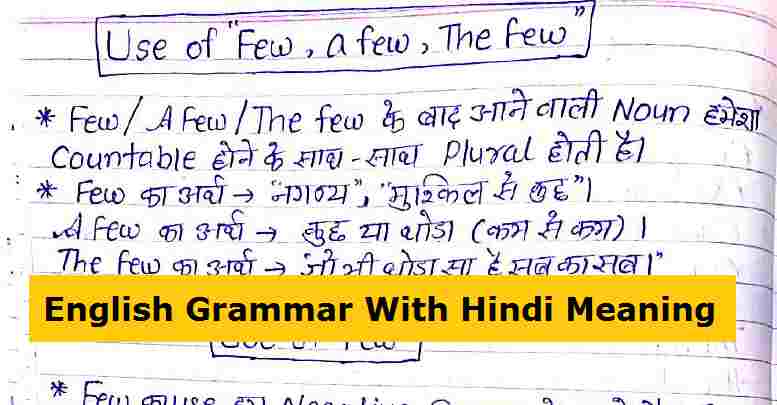 Use of "Few, a few, The few"
* Few/ A Few/The few के बाद आने वाली Noun हमेशा
Countable होने के साथ-साथ Plural होती है।
* Few का अर्थ → "नगण्य", "मुश्किल से कुछ"।
A few का अर्थ → कुछ या थोडा (कम से कम) ।
The few का अर्थ → "जो भी थोडा सा है सब का सब।"
English Grammar With Hindi Meaning
Use of Few
* Few का use हम Negative